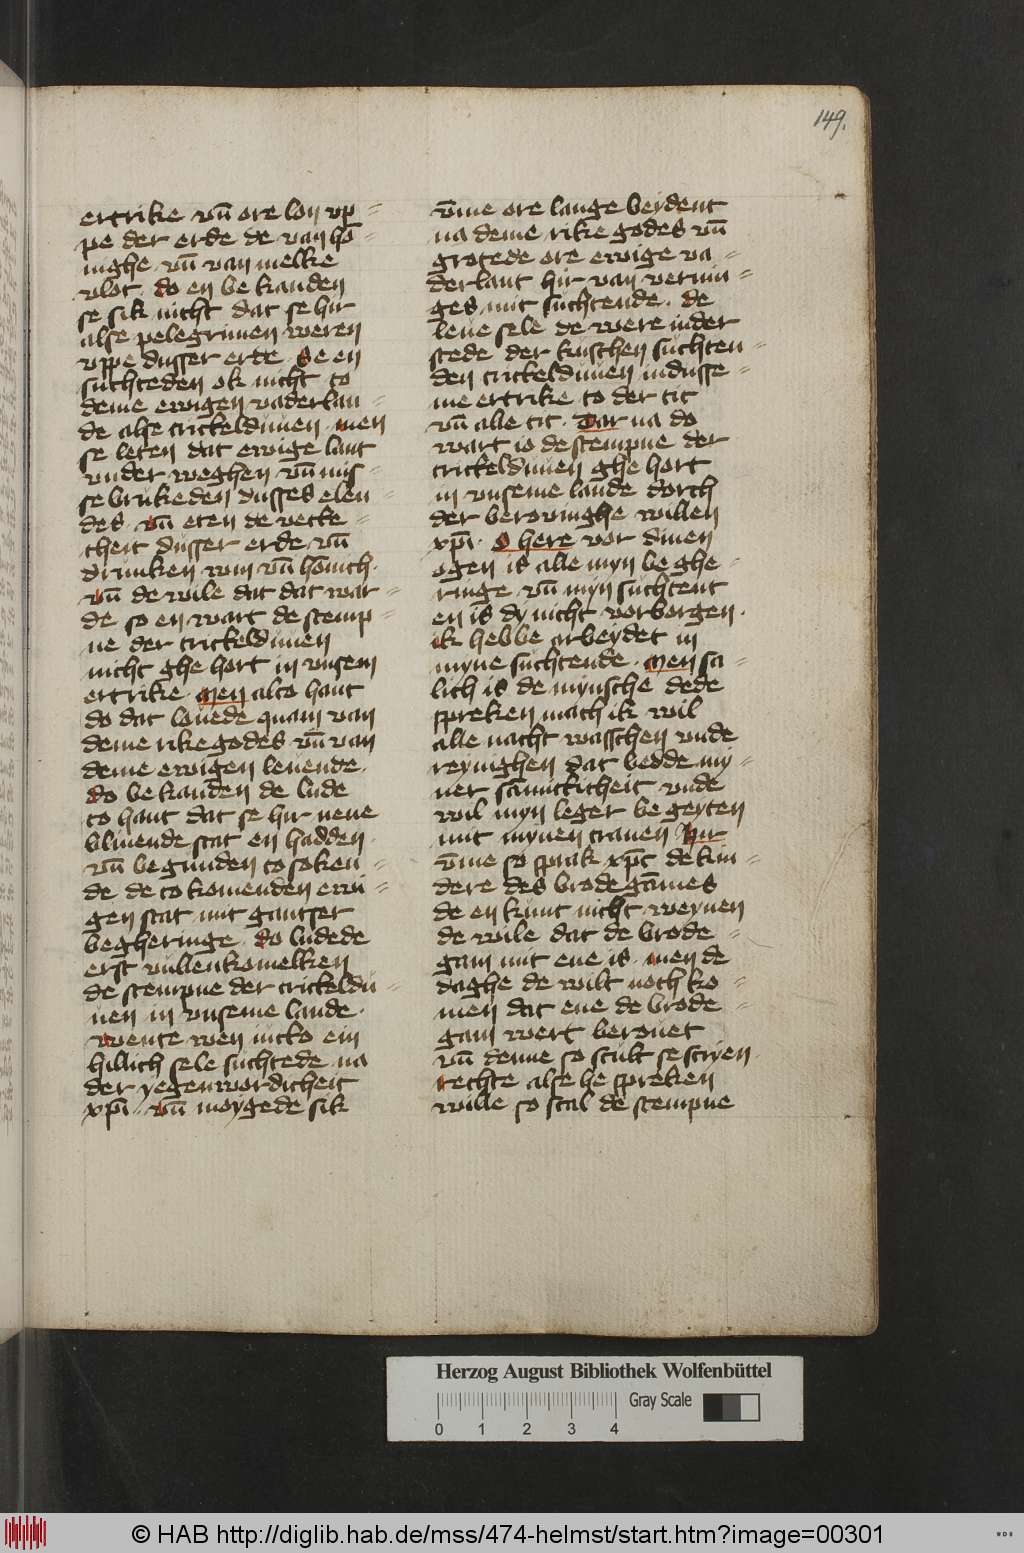 149.
ertrike vn̄ ore lon vp=
pe der erde de van hō=
nighe vn̄ van melke
vlot. do en be kanden
se sik nicht dat se hir
alse pelegrimen weren
vppe dusser erde. Se en
suchteden ok nicht to
deme ewigen vaderlan=
de alse trickelduuen. men
se leten dat ewige lant
vnder weghen vn̄ mis=
se brukeden dusses elen=
des. vn̄ eten de vette=
cheit dusser erde vn̄
drunken win vn̄ hōnich.
vn̄ de wile dat dat war=
de so en wart de stemp=
ne der trickelduuen
nicht ghe hort in vnsem
ertrike. Men alto hant
do dat louede quam van
deme rike godes vn̄ van
deme ewigen leuende.
do be kanden de lude
to hant dat se hir nene
bliuende stat en hadden.
vn̄ begunden to soken=
de de to komenden ewi=
gen stat mit gantser
begheringe. do ludede
erst vullenkomelken
de stempne der trickeldu=
uen in vnseme lande.
wente wen iucko ein
hillich sele suchtede na
der yegenwordicheit
xpī. vn̄ moygede sik
v̄me ore lange beydent
na deme rike godes vn̄
grotede ore ewige va=
derlant hir van vernin=
ges mit suchtende. de
leue sele de were in der
stede der kuschen suchten=
den trickelduuen in dusse=
me ertrike to der tit
vn̄ alle tit. Dar na do
wart io de stempne der
trickelduuen ghe hort
in vnseme lande dorch
der berouinghe willen
xpī. O here vor dinen
ogen is alle myn be ghe=
ringe vn̄ myn suchtent
en is dy nicht vorborgen.
ik hebbe arbeydet in
myne suchtende. Men sa=
lich is de mynsche dede
spreken mach ik wil
alle nacht wasschen vnde
reynighen dat bedde my=
ner sāmitticheit vnde
wil myn leger be geyten
mit mynen tranen Hir
v̄me so sprak xp̄c de kin=
dere des brode gāmes
de en kunt nicht weynen
de wile dat de brode=
gam mit ene is. men de
daghe de wilt noch ko=
men dat ene de brode=
gam wert berouet
vn̄ denne so scult se scryen.
rechte alse he spreken
wille so scal de stempne
Herzog August Bibliothek Wolfenbüttel
Gray Scale
0 1 2 3 4
© HAB http://diglib.hab.de/mss/474-helmst/start.htm?image=00301